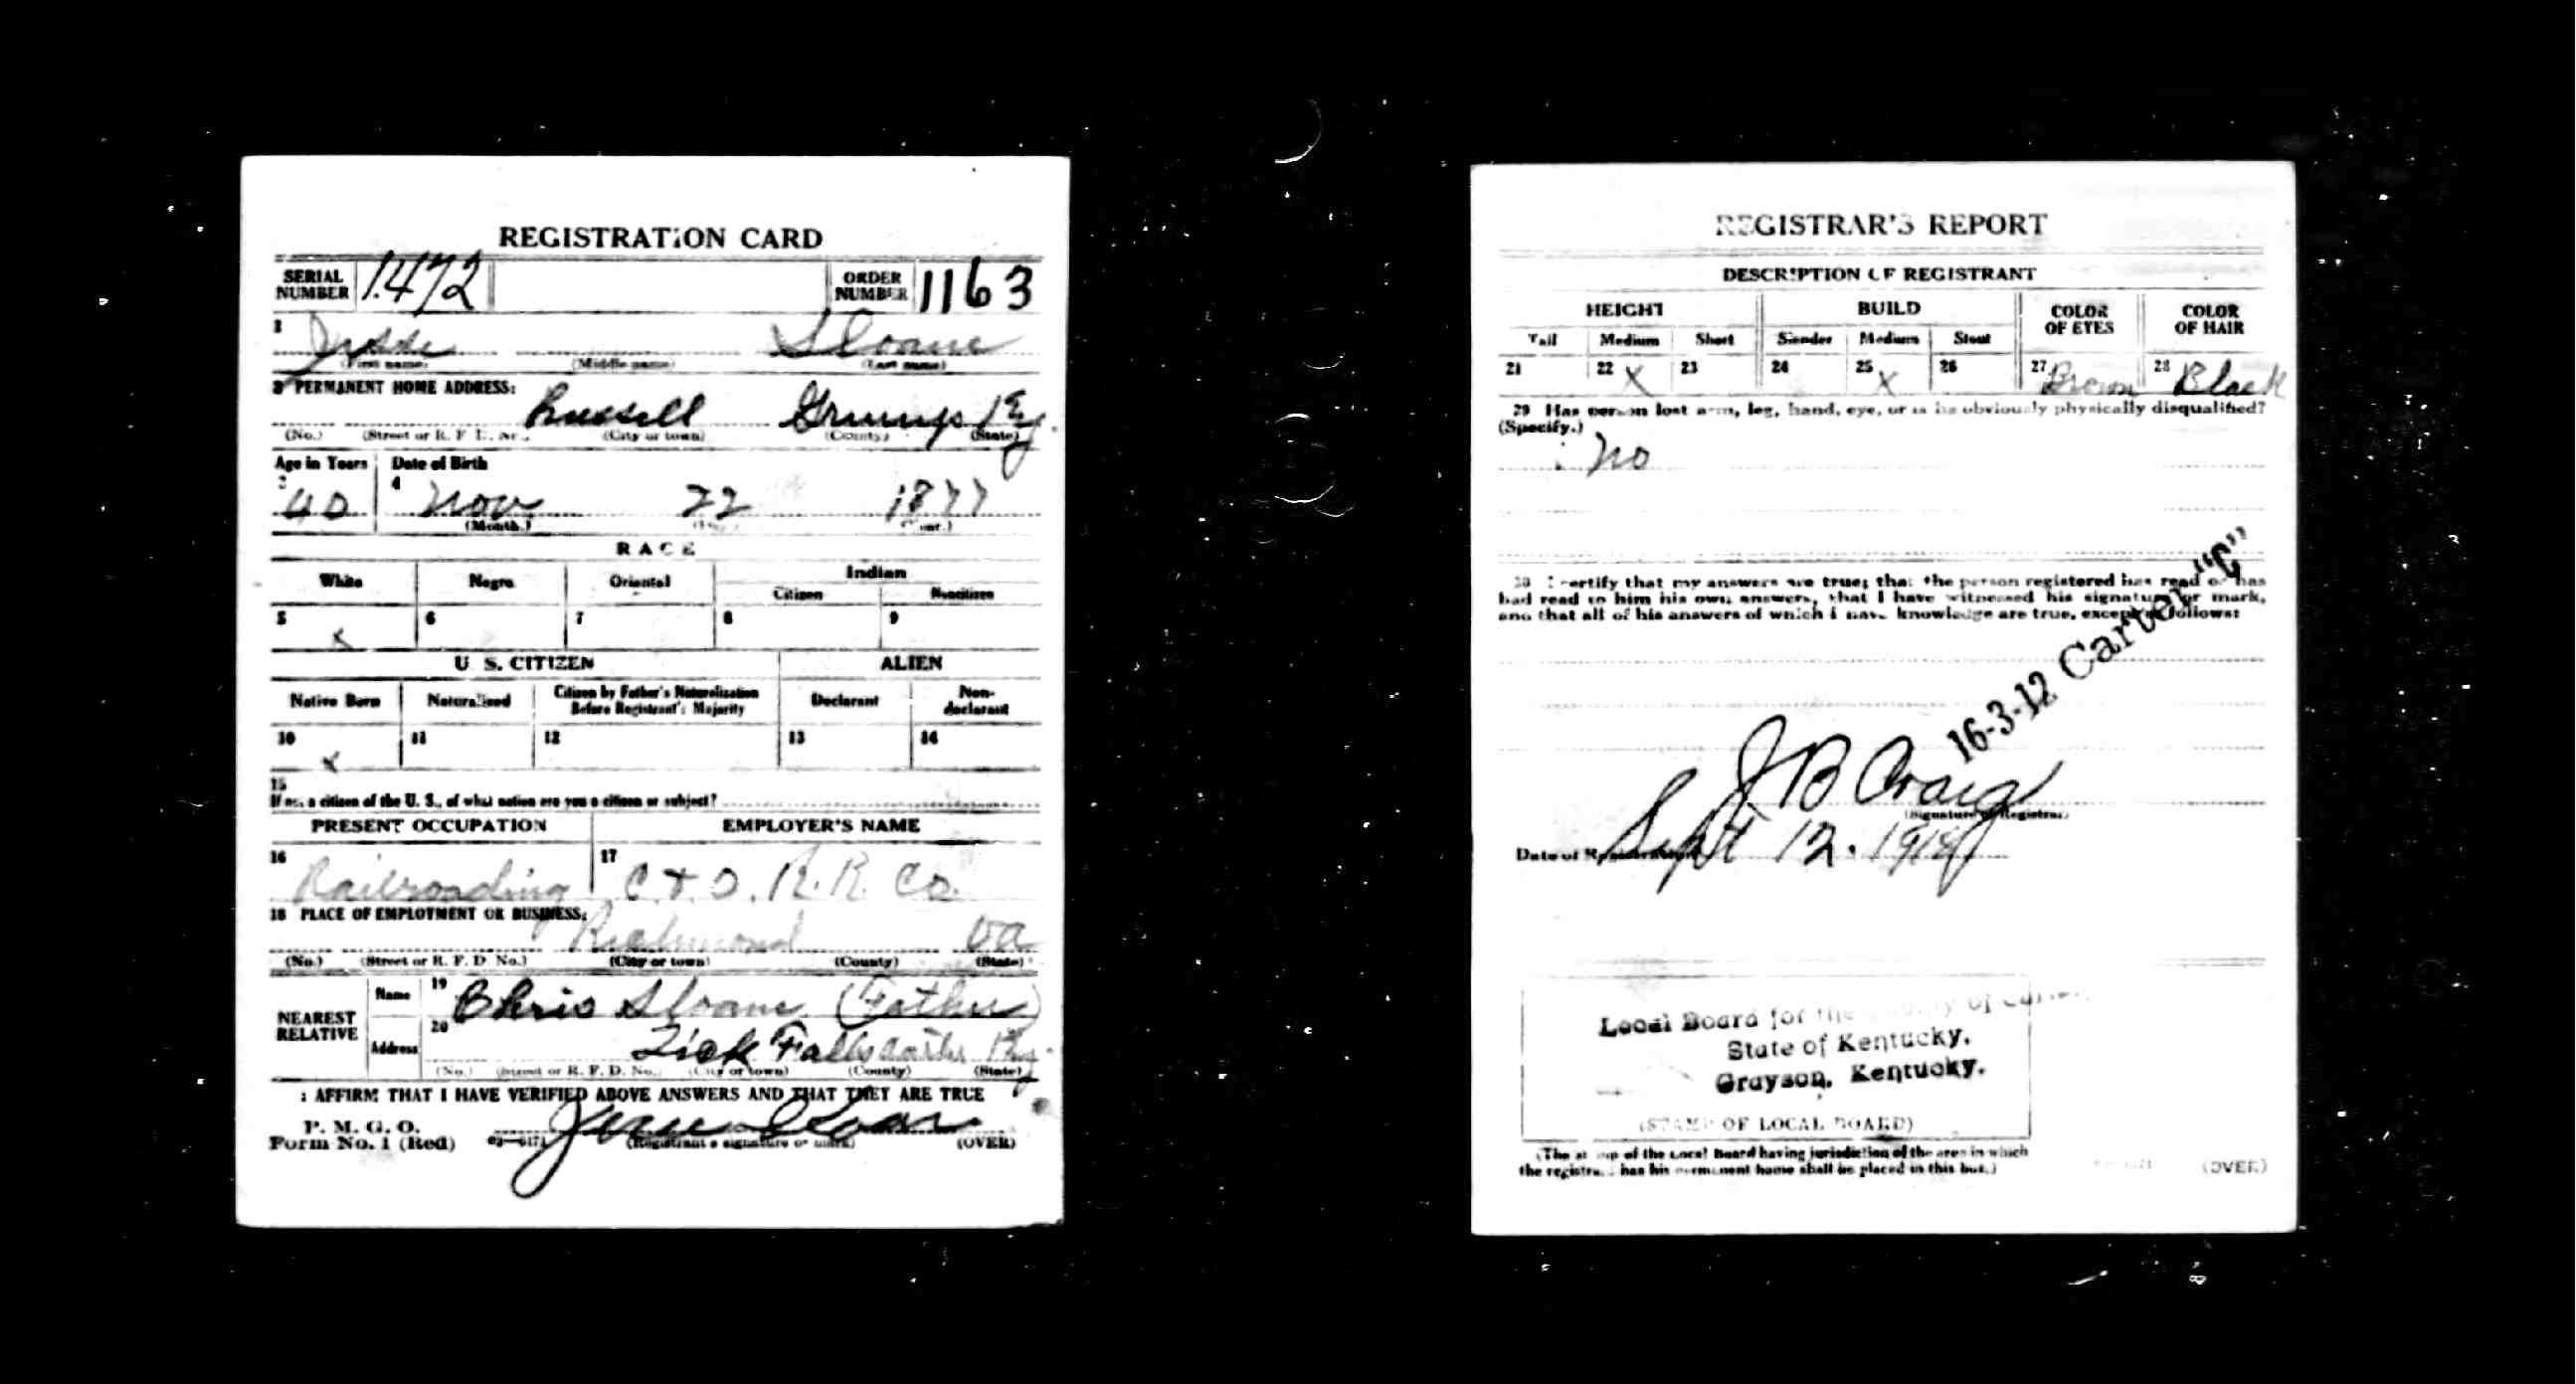 REGISTRATION CARD
SERIAL NUMBER 1472 ORDER NUMBER 1163
1 Jesse Sloane
(First name) (Middle name) (Last name)
2 PERMANENT HOME ADDRESS:
Russell Ky
(No.) (Street or R. F. D. No.) (City or town) (County) (State)
Age in Years Date of Birth
3 40 4 Nov 22 1877
(Month.) (Day.) (Year.)
RACE
White Negro Oriental Indian
Citizen Noncitizen
5 x 6 7 8 9
U. S. CITIZEN ALIEN
Native Born Naturalized Citizen by Father's Naturalization Before Registrant's Majority Declarant Non-declarant
10 x 11 12 13 14
15
If not a citizen of the U. S., of what nation are you a citizen or subject?
PRESENT OCCUPATION EMPLOYER'S NAME
16 Railroading 17 C & O. R. R. Co.
18 PLACE OF EMPLOYMENT OR BUSINESS:
Richmond Va
(No.) (Street or R. F. D. No.) (City or town) (County) (State)
NEAREST RELATIVE Name 19 Chris Sloane (Father)
Address 20 Falls Carter Ky.
(No.) (Street or R. F. D. No.) (City or town) (County) (State)
I AFFIRM THAT I HAVE VERIFIED ABOVE ANSWERS AND THAT THEY ARE TRUE
P. M. G. O.
Form No. 1 (Red) (Registrant's signature or mark) (OVER)
REGISTRAR'S REPORT
DESCRIPTION OF REGISTRANT
HEIGHT BUILD COLOR OF EYES COLOR OF HAIR
Tall Medium Short Slender Medium Stout
21 22 X 23 24 25 X 26 27 Brown 28 Black
29 Has person lost arm, leg, hand, eye, or is he obviously physically disqualified?
(Specify.)
No
30 I certify that my answers are true; that the person registered has read or has
had read to him his own answers, that I have witnessed his signature or mark,
and that all of his answers of which I have knowledge are true, except as follows:
16-3-12 Carter "C"
J B Craig
(Signature of Registrar)
Date of Registration Sept 12. 1918
Local Board for the County of Carter
State of Kentucky,
Grayson, Kentucky.
(STAMP OF LOCAL BOARD)
(The stamp of the Local Board having jurisdiction of the area in which
the registrant has his permanent home shall be placed in this box.)
(OVER)